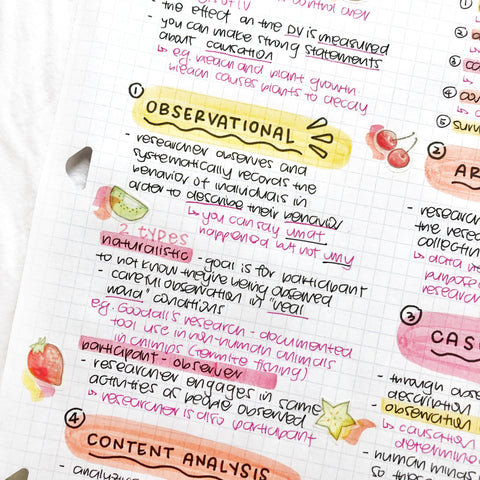 of IV
control over
- the effect on the DV is measured
- you can make strong statements
about causation
↳ e.g. bleach and plant growth
bleach causes plants to decay
① OBSERVATIONAL
- researcher observes and
systematically records the
behavior of individuals in
order to describe their behavior
↳ you can say what
happened but not why
2 types
naturalistic - goal is for participant
to not know they're being observed
- careful observation in "real
world" conditions
e.g. Goodall's research - documented
tool use in non-human animals
in chimps (termite fishing)
participant - observer
- researcher engages in same
activities as people observed
↳ researcher is also participant
④
CONTENT ANALYSIS
- analyzing
①
②
③
④
⑤ surv
②
AR
- research
the rese
collectin
↳ data
purpose
research
③
CAS
- through obse
description
- observation
↳ causation
determine
- human minds
so this